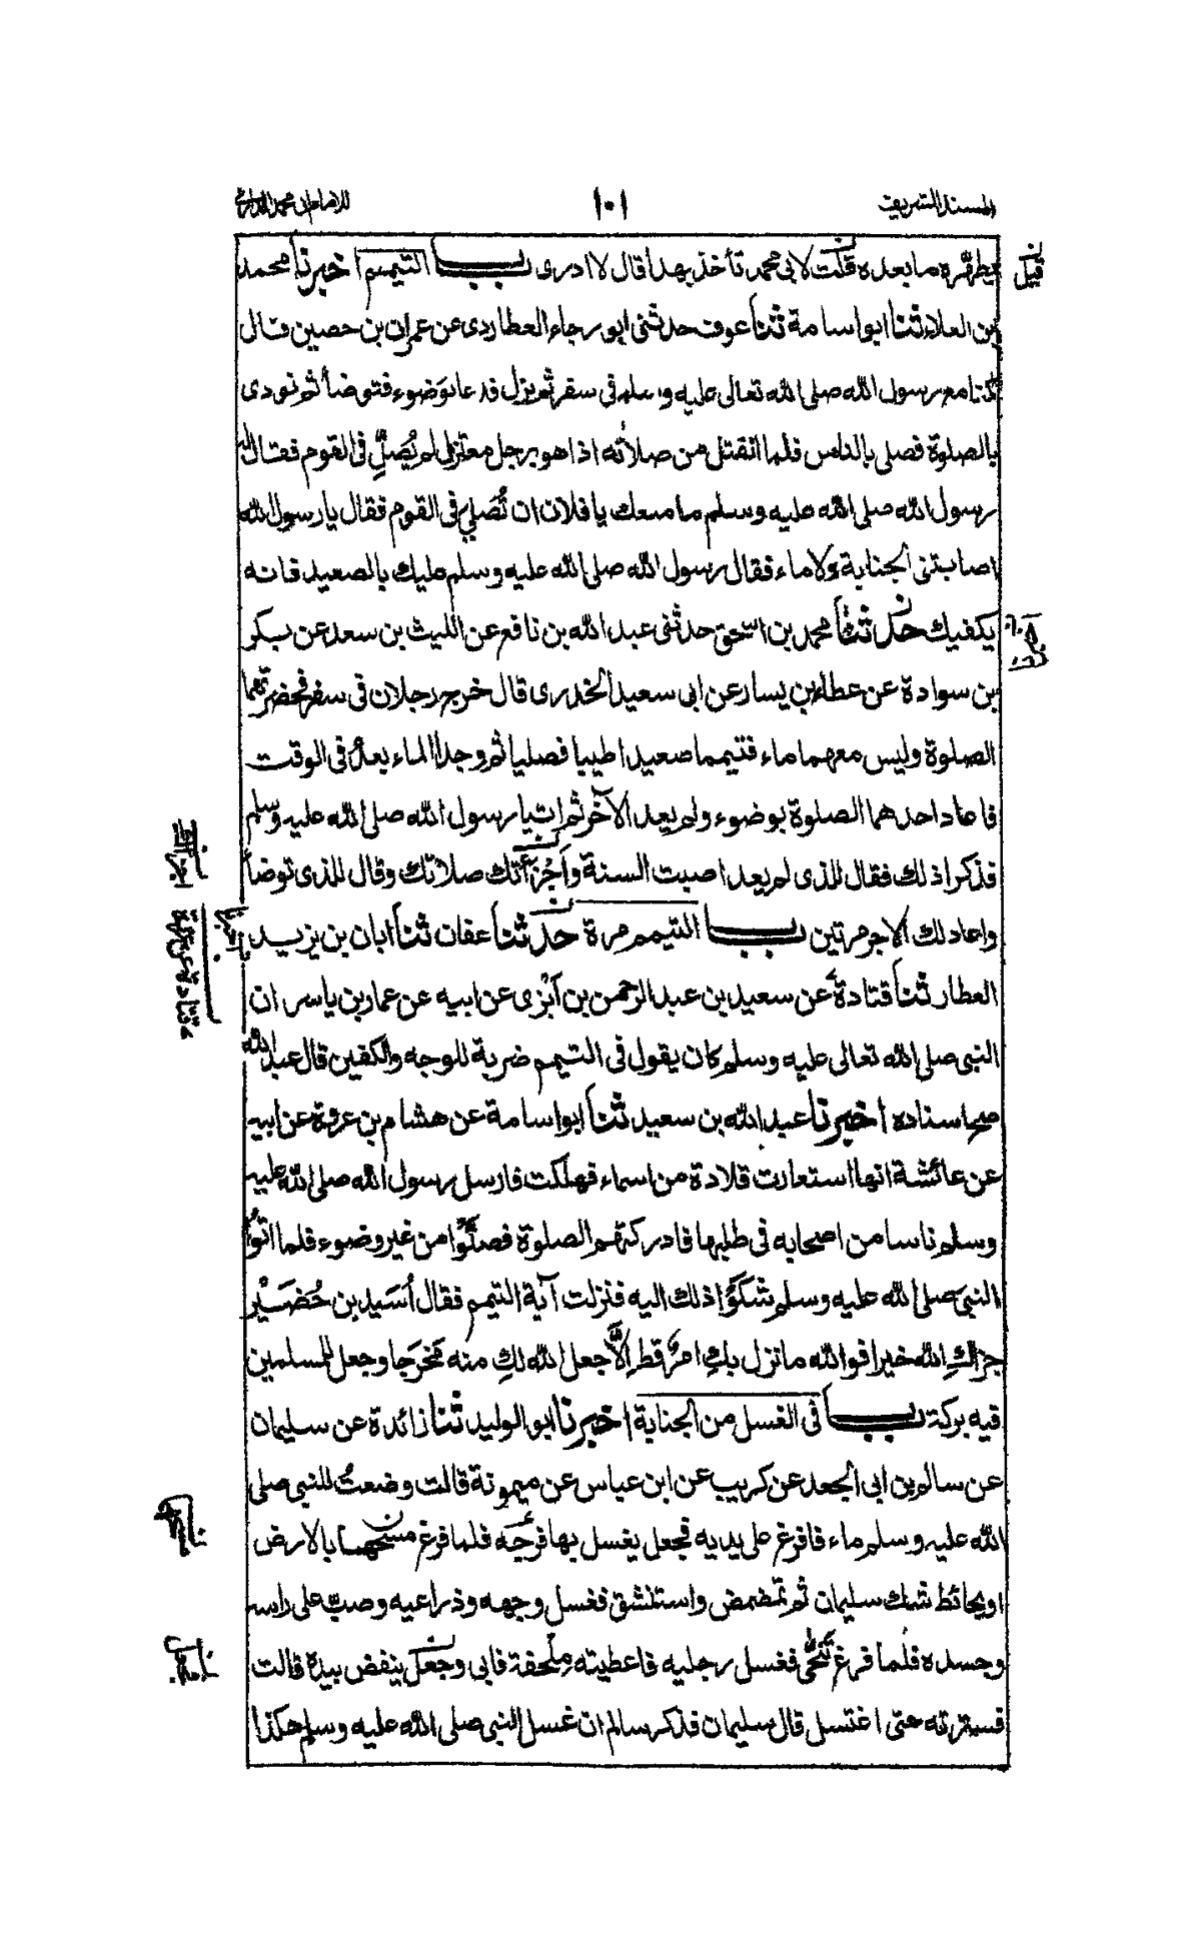 المسند الشريف ١٠١ للامام ابی محمد الدارمی
يطهره ما بعده قلت لابی محمد تأخذ بهذا قال لا ادری باب التيمم اخبرنا محمد
قيل
بن العلاء ثنا ابو اسامة ثنا عوف حدثنی ابو رجاء العطاردی عن عمران بن حصين قال
كنا مع رسول الله صلى الله تعالى عليه وسلم فی سفر ثم نزل فدعا بوَضوء فتوضأ ثم نودی
بالصلوة فصلى بالناس فلما انفتل من صلاته اذا هو برجل معتزل لم يُصَلِّ فی القوم فقال له
رسول الله صلى الله عليه وسلم ما منعك يا فلان ان تُصَلی فی القوم فقال يا رسول الله
اصابتنی الجنابة ولا ماء فقال رسول الله صلى الله عليه وسلم عليك بالصعيد فانه
يكفيك حدثنا محمد بن اسحق حدثنی عبد الله بن نافع عن الليث بن سعد عن بكر
بن سوادة عن عطاء بن يسار عن ابی سعيد الخدری قال خرج رجلان فی سفر فحضرتهما
الصلوة وليس معهما ماء فتيمما صعيدا طيبا فصليا ثم وجدا الماء بعدُ فی الوقت
فاعاد احدهما الصلوة بوضوء ولم يعد الآخر ثم اتيا رسول الله صلى الله عليه وسلم
فذكرا ذلك فقال للذی لم يعد اصبت السنة وأجزأتك صلاتك وقال للذی توضأ
واعاد لك الاجر مرتين باب التيمم مرة حدثنا عفان ثنا ابان بن يزيد
اخبرنا
العطار ثنا قتادة عن سعيد بن عبد الرحمن بن أبْزی عن ابيه عن عمار بن ياسر ان
النبی صلى الله تعالى عليه وسلم كان يقول فی التيمم ضربة للوجه والكفين قال عبد الله
صح اسناده اخبرنا عبد الله بن سعيد ثنا ابو اسامة عن هشام بن عروة عن ابيه
عن عائشة انها استعارت قلادة من اسماء فهلكت فارسل رسول الله صلى الله عليه
وسلم ناسا من اصحابه فی طلبها فادركتهم الصلوة فصلَّوْا من غير وضوء فلما اتوُا
النبی صلى الله عليه وسلم شكَوْا ذلك اليه فنزلت آية التيمم فقال أُسَيد بن حُضَيْر
جزاكِ الله خيرا فوالله ما نزل بكِ امرٌ قط اِلَّا جعل الله لكِ منه مَخرَجا وجعل للمسلمين
فيه بركة باب فی الغسل من الجنابة اخبرنا ابو الوليد ثنا زائدة عن سليمان
عن سالم بن ابی الجعد عن كريب عن ابن عباس عن ميمونة قالت وضعتُ للنبی صلى
الله عليه وسلم ماء فافرغ على يديه فجعل يغسل بها فرجَه فلما فرغ مسحها بالارض
او بحائط شك سليمان ثم تمضمض واستنشق فغسل وجهه وذراعيه وصبّ على راسه
وجسده فلما فرغ تَنَحّٰی فغسل رجليه فاعطيته مِلحفة فابى وجعل ينفض بيده قالت
فسترته حتى اغتسل قال سليمان فذكر سالم ان غسل النبی صلى الله عليه وسلم هكذا